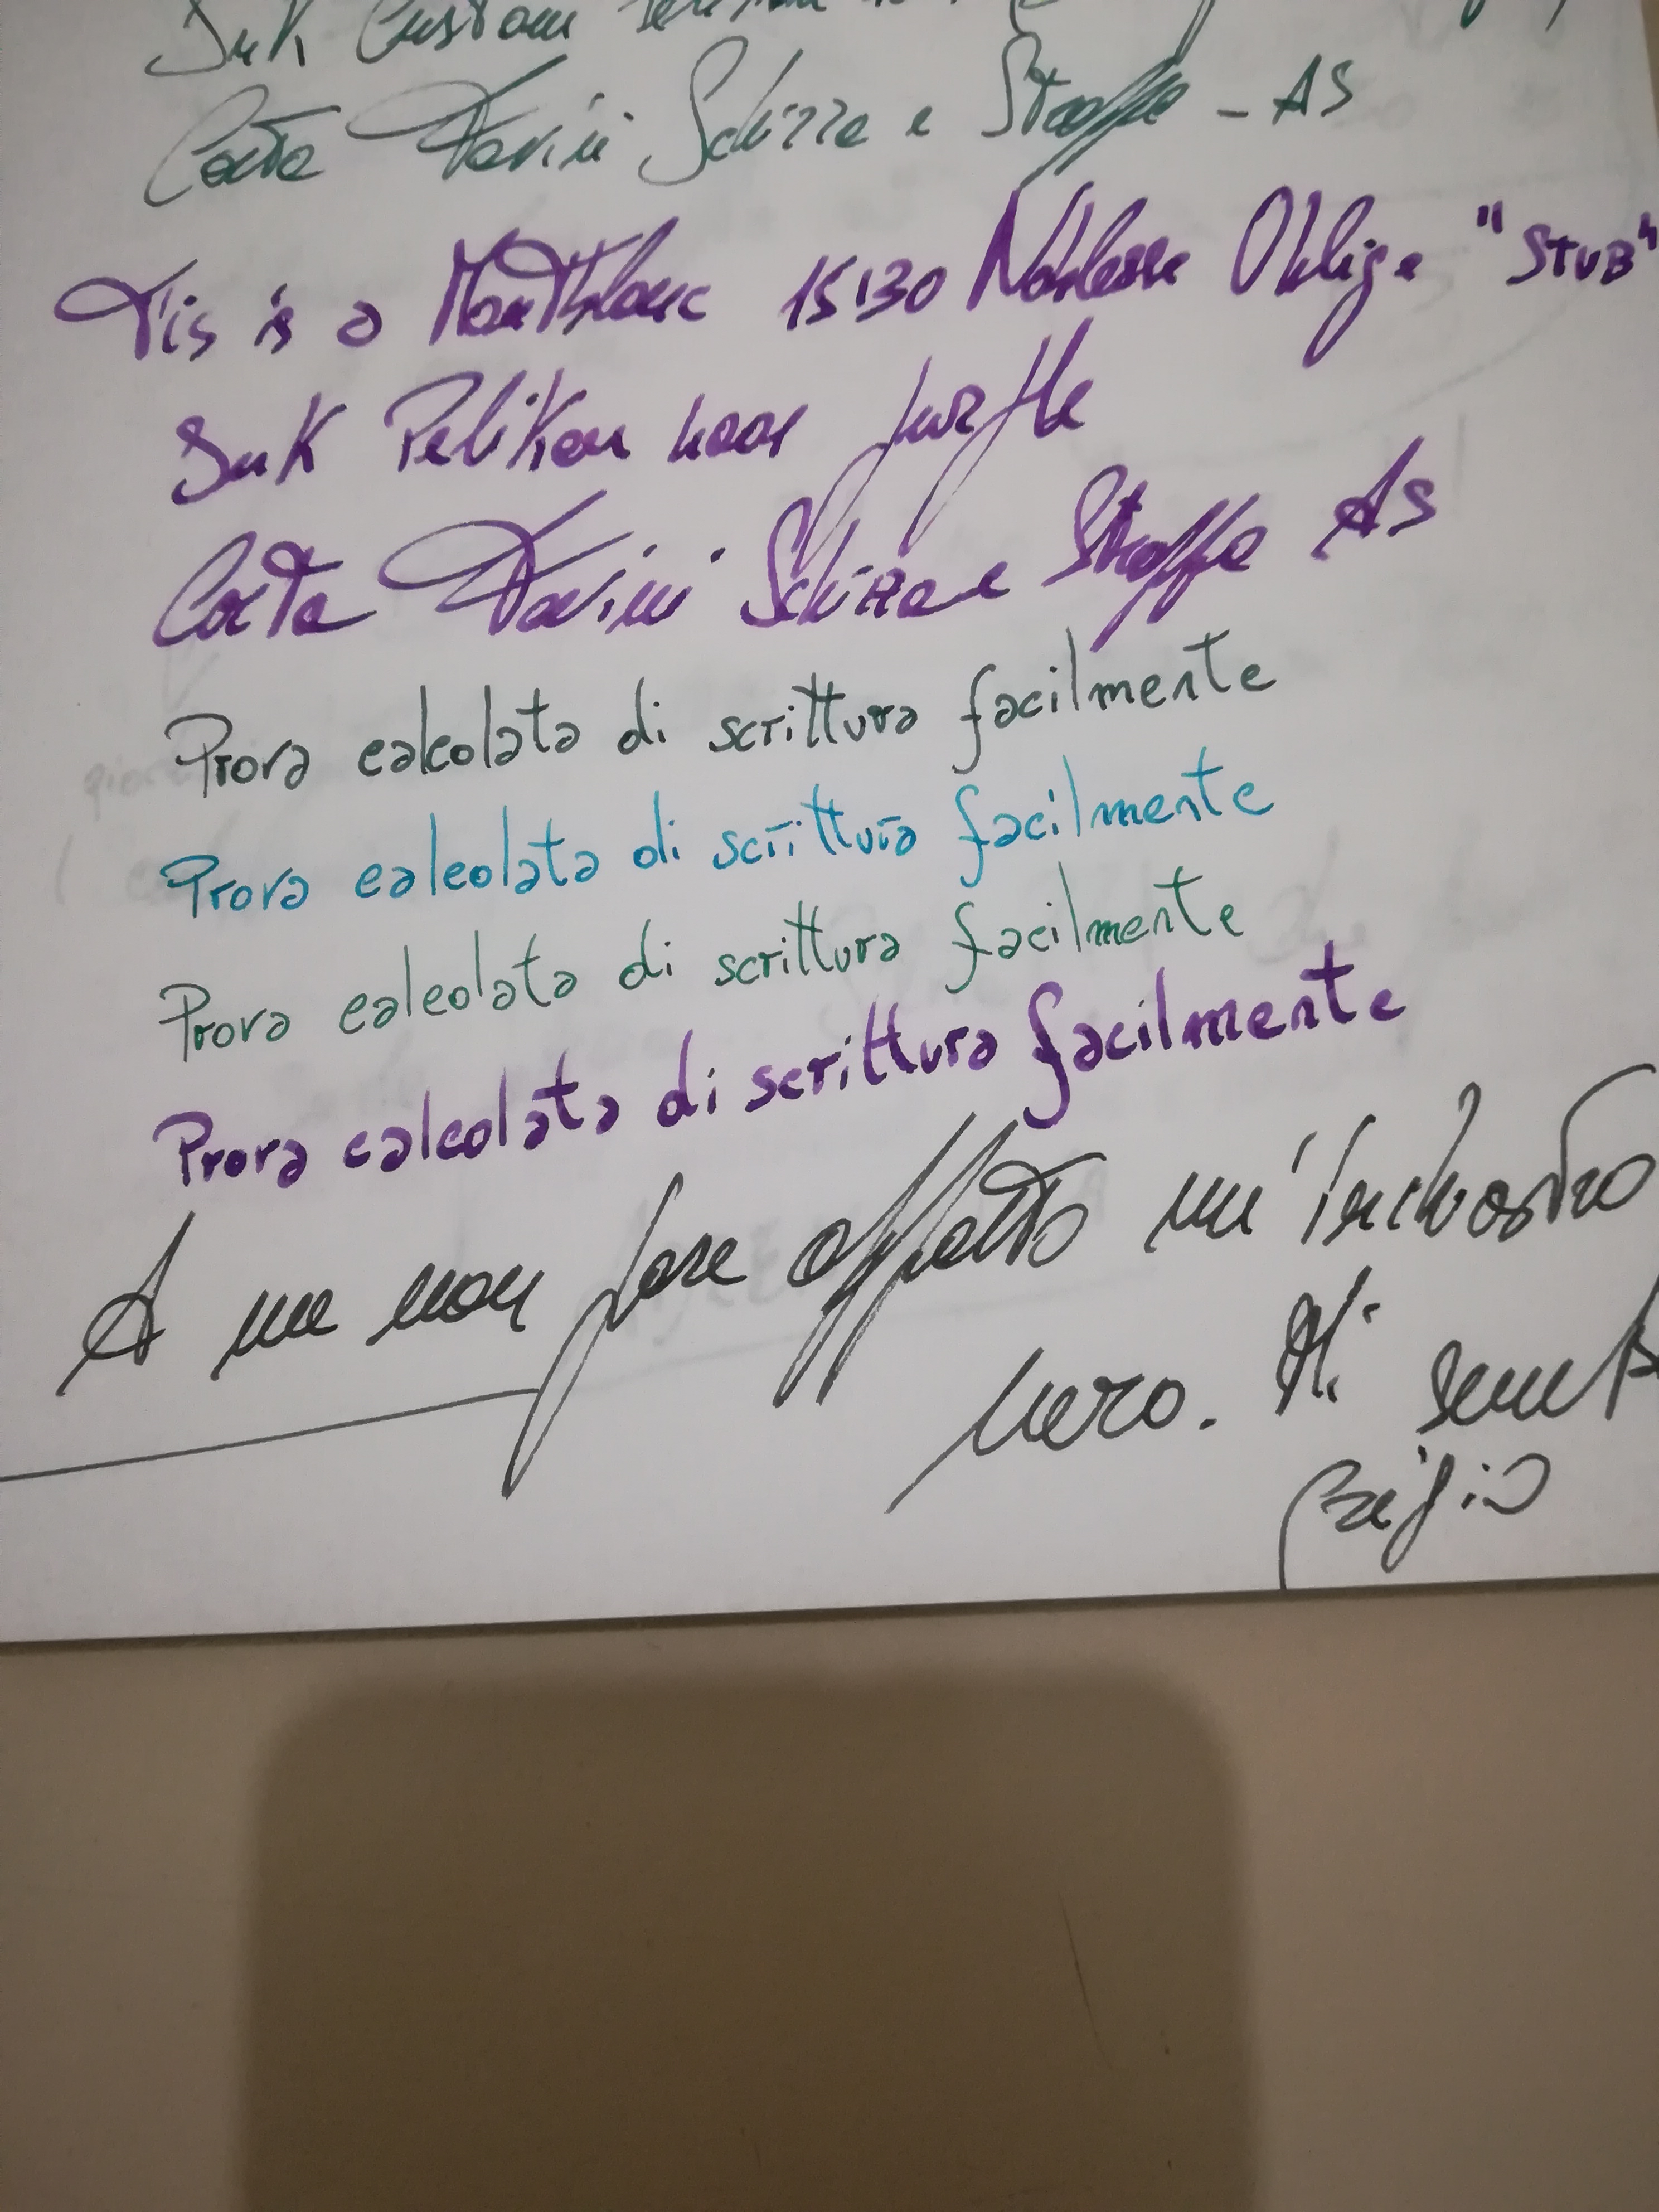 Ink Custom
Carta Favini Schizza e Straffo - A5
Tis is a Montblanc 1530 Noblesse Oblige "STUB"
Ink Pelikan 4001 purple
Carta Favini Schizza e Straffo A5
Prova calcolata di scrittura facilmente
Prova calcolata di scrittura facilmente
Prova calcolata di scrittura facilmente
Prova calcolata di scrittura facilmente
A me non pare affatto un'inchostro
nero. Mi
grigio